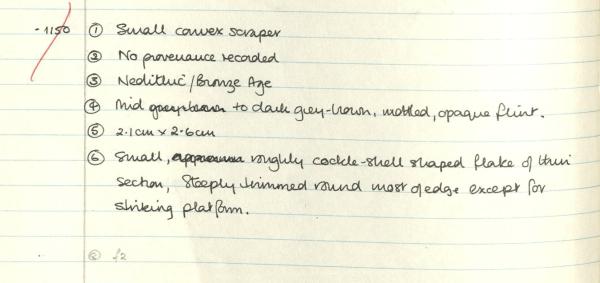 -1150 ① Small convex scraper
② No provenance recorded
③ Neolithic/Bronze Age
④ Mid to dark grey-brown, mottled, opaque flint.
⑤ 2.1cm x 2.6cm
⑥ Small, roughly cockle-shell shaped flake of thin
section, steeply trimmed round most of edge except for
striking platform.
② f2